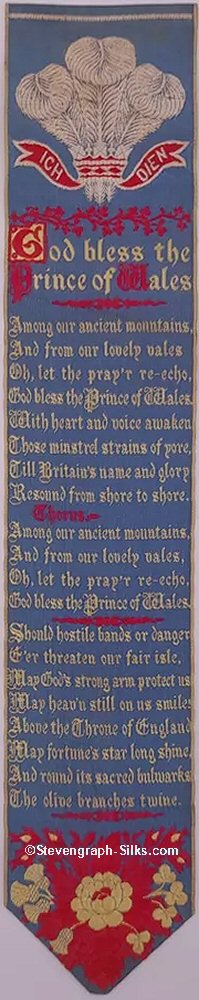 ICH DIEN
God bless the
Prince of Wales
Among our ancient mountains,
And from our lovely vales
Oh, let the pray'r re-echo,
God bless the Prince of Wales.
With heart and voice awaken
Those minstrel strains of yore,
Till Britain's name and glory
Resound from shore to shore.
Chorus.
Among our ancient mountains,
And from our lovely vales,
Oh, let the pray'r re-echo,
God bless the Prince of Wales.
Should hostile bands or danger
E'er threaten our fair isle,
May God's strong arm protect us,
May heav'n still on us smile:
Above the Throne of England
May fortune's star long shine,
And round its sacred bulwarks
The olive branches twine.
©Stevengraph-Silks.com